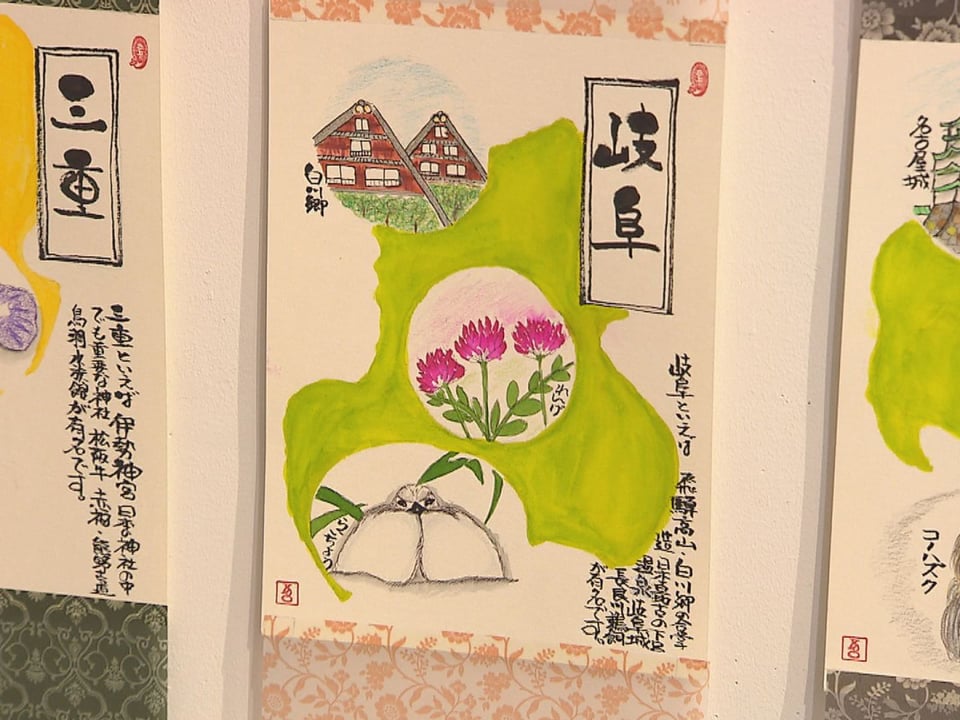 三重
三重といえば 伊勢神宮 日本の神社の中
でも重要な神社 松阪牛 赤福・熊野古道
鳥羽水族館が有名です。
岐阜
白川郷
れんげ
らいちょう
岐阜といえば 飛騨高山・白川郷の合掌
造 日本最古の下呂
温泉 岐阜城
長良川鵜飼
が有名です。
名古屋城
コノハズク